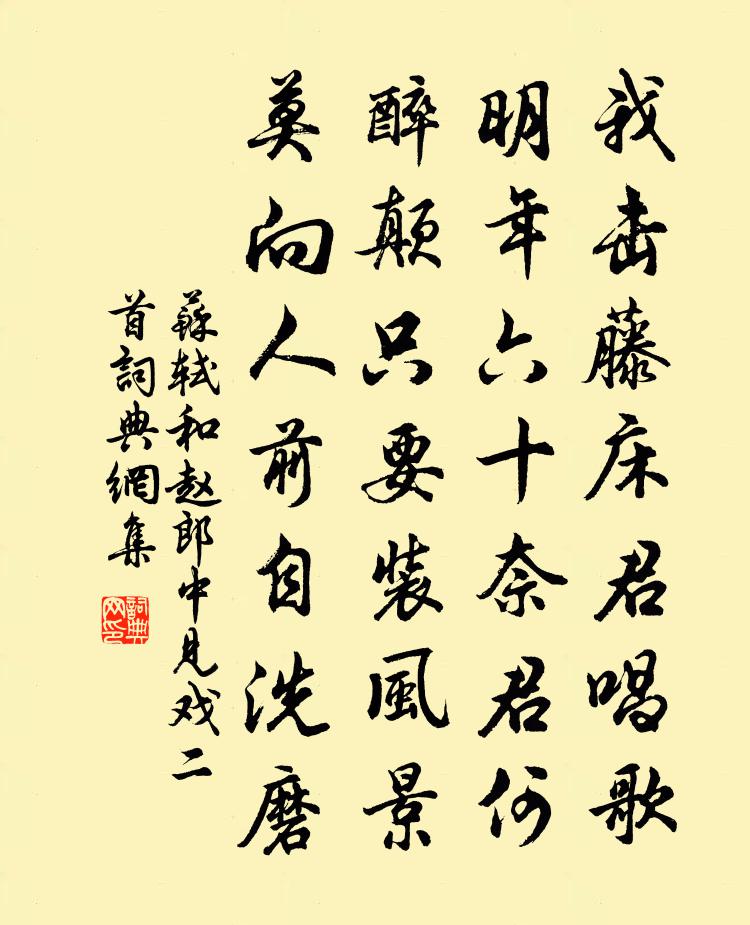 我击藤床君唱歌
明年六十奈君何
醉颠只要装風景
莫向人前自洗磨
蘇轼和赵郎中見戏二
首詞典網集
詞典
网印